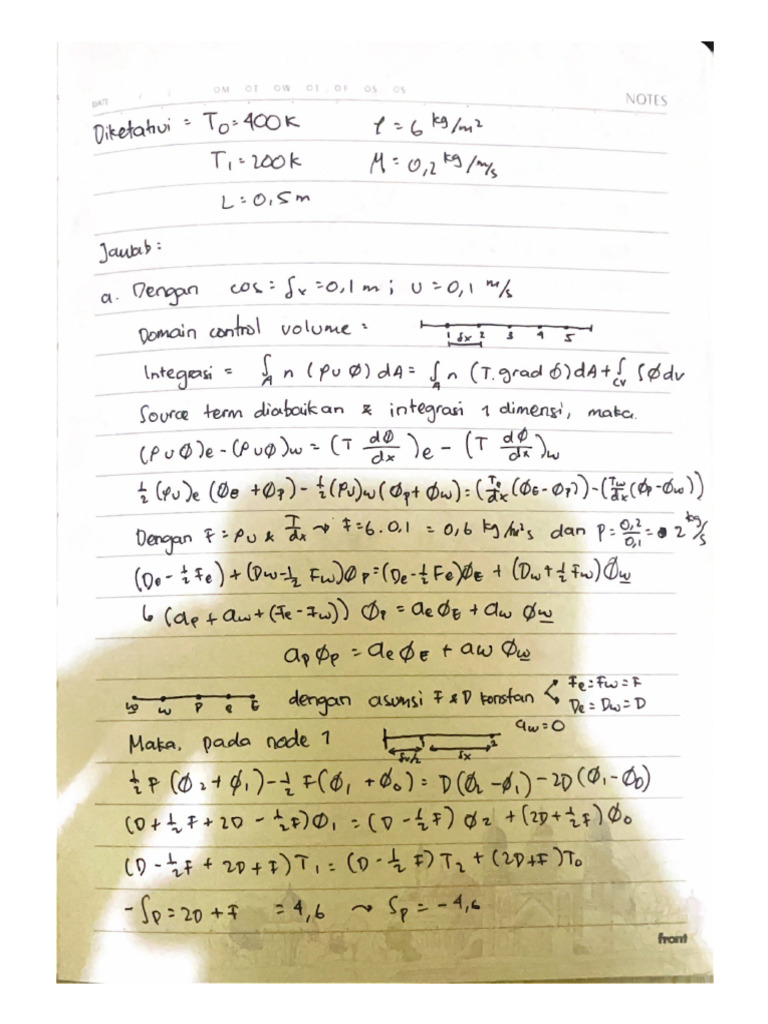 OM OT OW OT OF OS OS
DATE / / NOTES
Diketahui = T₀=400K ρ = 6 kg/m²
T₁=200K M = 0,2 kg/m/s
L=0,5m
Jawab:
a. Dengan cos= δx=0,1 m; u=0,1 m/s
Domain control volume =
1 δx 2 3 4 5
Integrasi = ∫A n (ρu∅) dA = ∫A n (T.grad ∅)dA + ∫cv S∅dv
Source term diabaikan & integrasi 1 dimensi, maka.
(ρu∅)e-(ρu∅)w = (T d∅/dx)e - (T d∅/dx)w
½(ρu)e (∅E +∅p)-½(ρu)w(∅p+∅w)=(Te/dx(∅E-∅p))-(Tw/dx(∅p-∅w))
Dengan F=ρu & T/dx → F=6.0,1 = 0,6 kg/m²s dan P=0,2/0,1= 2 kg/s
(De-½Fe)+(Dw-½ Fw)∅p=(De-½Fe)∅E + (Dw+½Fw)∅w
6 (ap+aw+(Fe-Fw)) ∅p = ae∅E + aw ∅w
ap∅p = ae∅E + aw∅w
w w P e E dengan asumsi F & D konstan Fe=Fw=F
De=Dw=D
Maka, pada node 1 aw=0
δx/2 δx 2
½F (∅2+∅1)-½F(∅1+∅0)= D(∅2-∅1)-2D(∅1-∅0)
(D+½F+2D-½F)∅1 = (D-½F)∅2 + (2D+½F)∅0
(D-½F+2D+F)T₁=(D-½F)T₂ + (2D+F)T₀
-Sp=2D+F =4,6 → Sp=-4,6
front